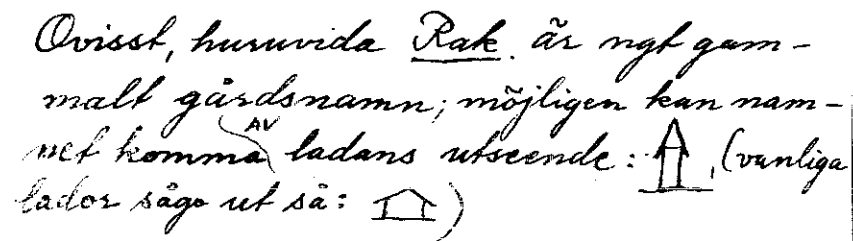 Ovisst, huruvida Rak. är ngt gam-
malt gårdsnamn; möjligen kan nam-
net komma AV ladans utseende: , (vanliga
lador sågo ut så: )